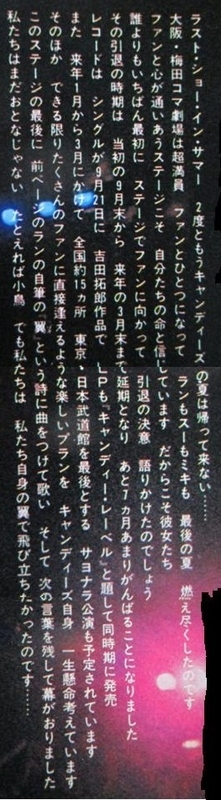 ラスト・ショー・イン・サマー　2度ともうキャンディーズの夏は帰って来ない……
大阪・梅田コマ劇場は超満員　ファンとひとつになって　ランもスーもミキも　最後の夏　燃え尽くしたのです
ファンと心が通いあうステージこそ　自分たちの命と信じています　だからこそ彼女たち
誰よりもいちばん最初に　ステージでファンに向かって　引退の決意　語りかけたのでしょう
その引退の時期は　当初の9月末から　来年の3月末まで延期となり　あと7ヵ月あまりがんばることになりました
レコードは　シングルが9月21日に　吉田拓郎作品で　LPも『キャンディー・レーベル』と題して同時期に発売
また　来年1月から3月にかけて　全国約15ヵ所　東京・日本武道館を最後とする　サヨナラ公演も予定されています
そのほか　できる限りたくさんのファンに直接逢えるような楽しいプランを　キャンディーズ自身　一生懸命考えています
このステージの最後に　前ページのランの自筆の『翼』という詩に曲をつけて歌い　そして　次の言葉を残して幕がおりました
私たちはまだおとなじゃない　たとえれば小鳥　でも私たちは　私たち自身の翼で飛び立ちたかったのです……